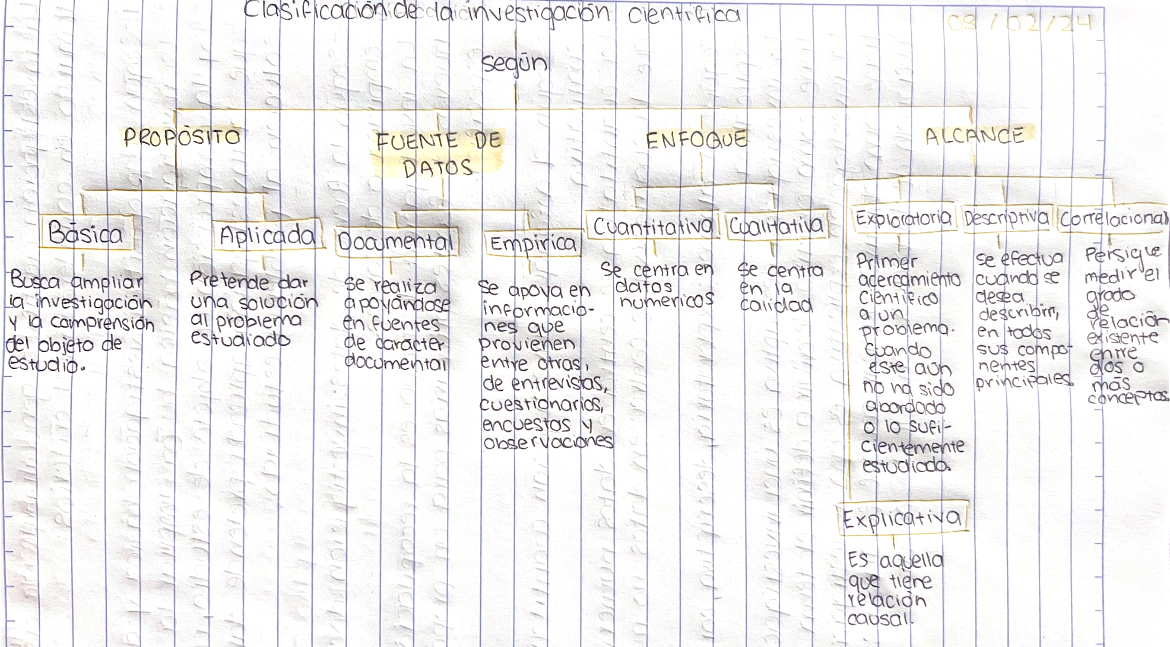 Clasificación de la investigación científica
08/02/24
según
PROPÓSITO
Básica
Busca ampliar
la investigación
y la comprensión
del objeto de
estudio.
Aplicada
Pretende dar
una solución
al problema
estudiado
FUENTE DE
DATOS
Documental
se realiza
apoyándose
en fuentes
de carácter
documental
Empírica
se apoya en
informacio-
nes que
provienen
entre otras,
de entrevistas,
cuestionarios,
encuestas y
observaciones
ENFOQUE
Cuantitativa
Se centra en
datos
numericos
Cualitativa
se centra
en la
calidad
ALCANCE
Exploratoria
Primer
acercamiento
científico
a un
problema.
Cuando
este aun
no ha sido
abordado
o lo sufi-
cientemente
estudiado.
Descriptiva
se efectua
cuando se
desea
describir,
en todos
sus compo-
nentes
principales
Correlacional
Persigue
medir el
grado
de
relación
existente
entre
dos o
más
conceptos
Explicativa
Es aquella
que tiene
relación
causal.